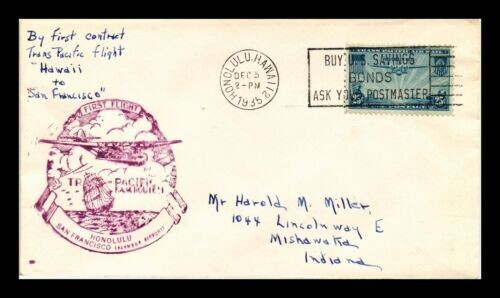 By first contract
Trans Pacific flight
"Hawaii
to
San Francisco"
HONOLULU, HAWAII
DEC 5
2-PM
1935
BUY U.S. SAVINGS
BONDS
ASK YOUR POSTMASTER
25
25
FIRST FLIGHT
TRANS PACIFIC
F.A.M. ROUTE 14
HONOLULU
SAN FRANCISCO
Mr Harold M. Miller,
1044 Lincolnway E
Mishawaka
Indiana